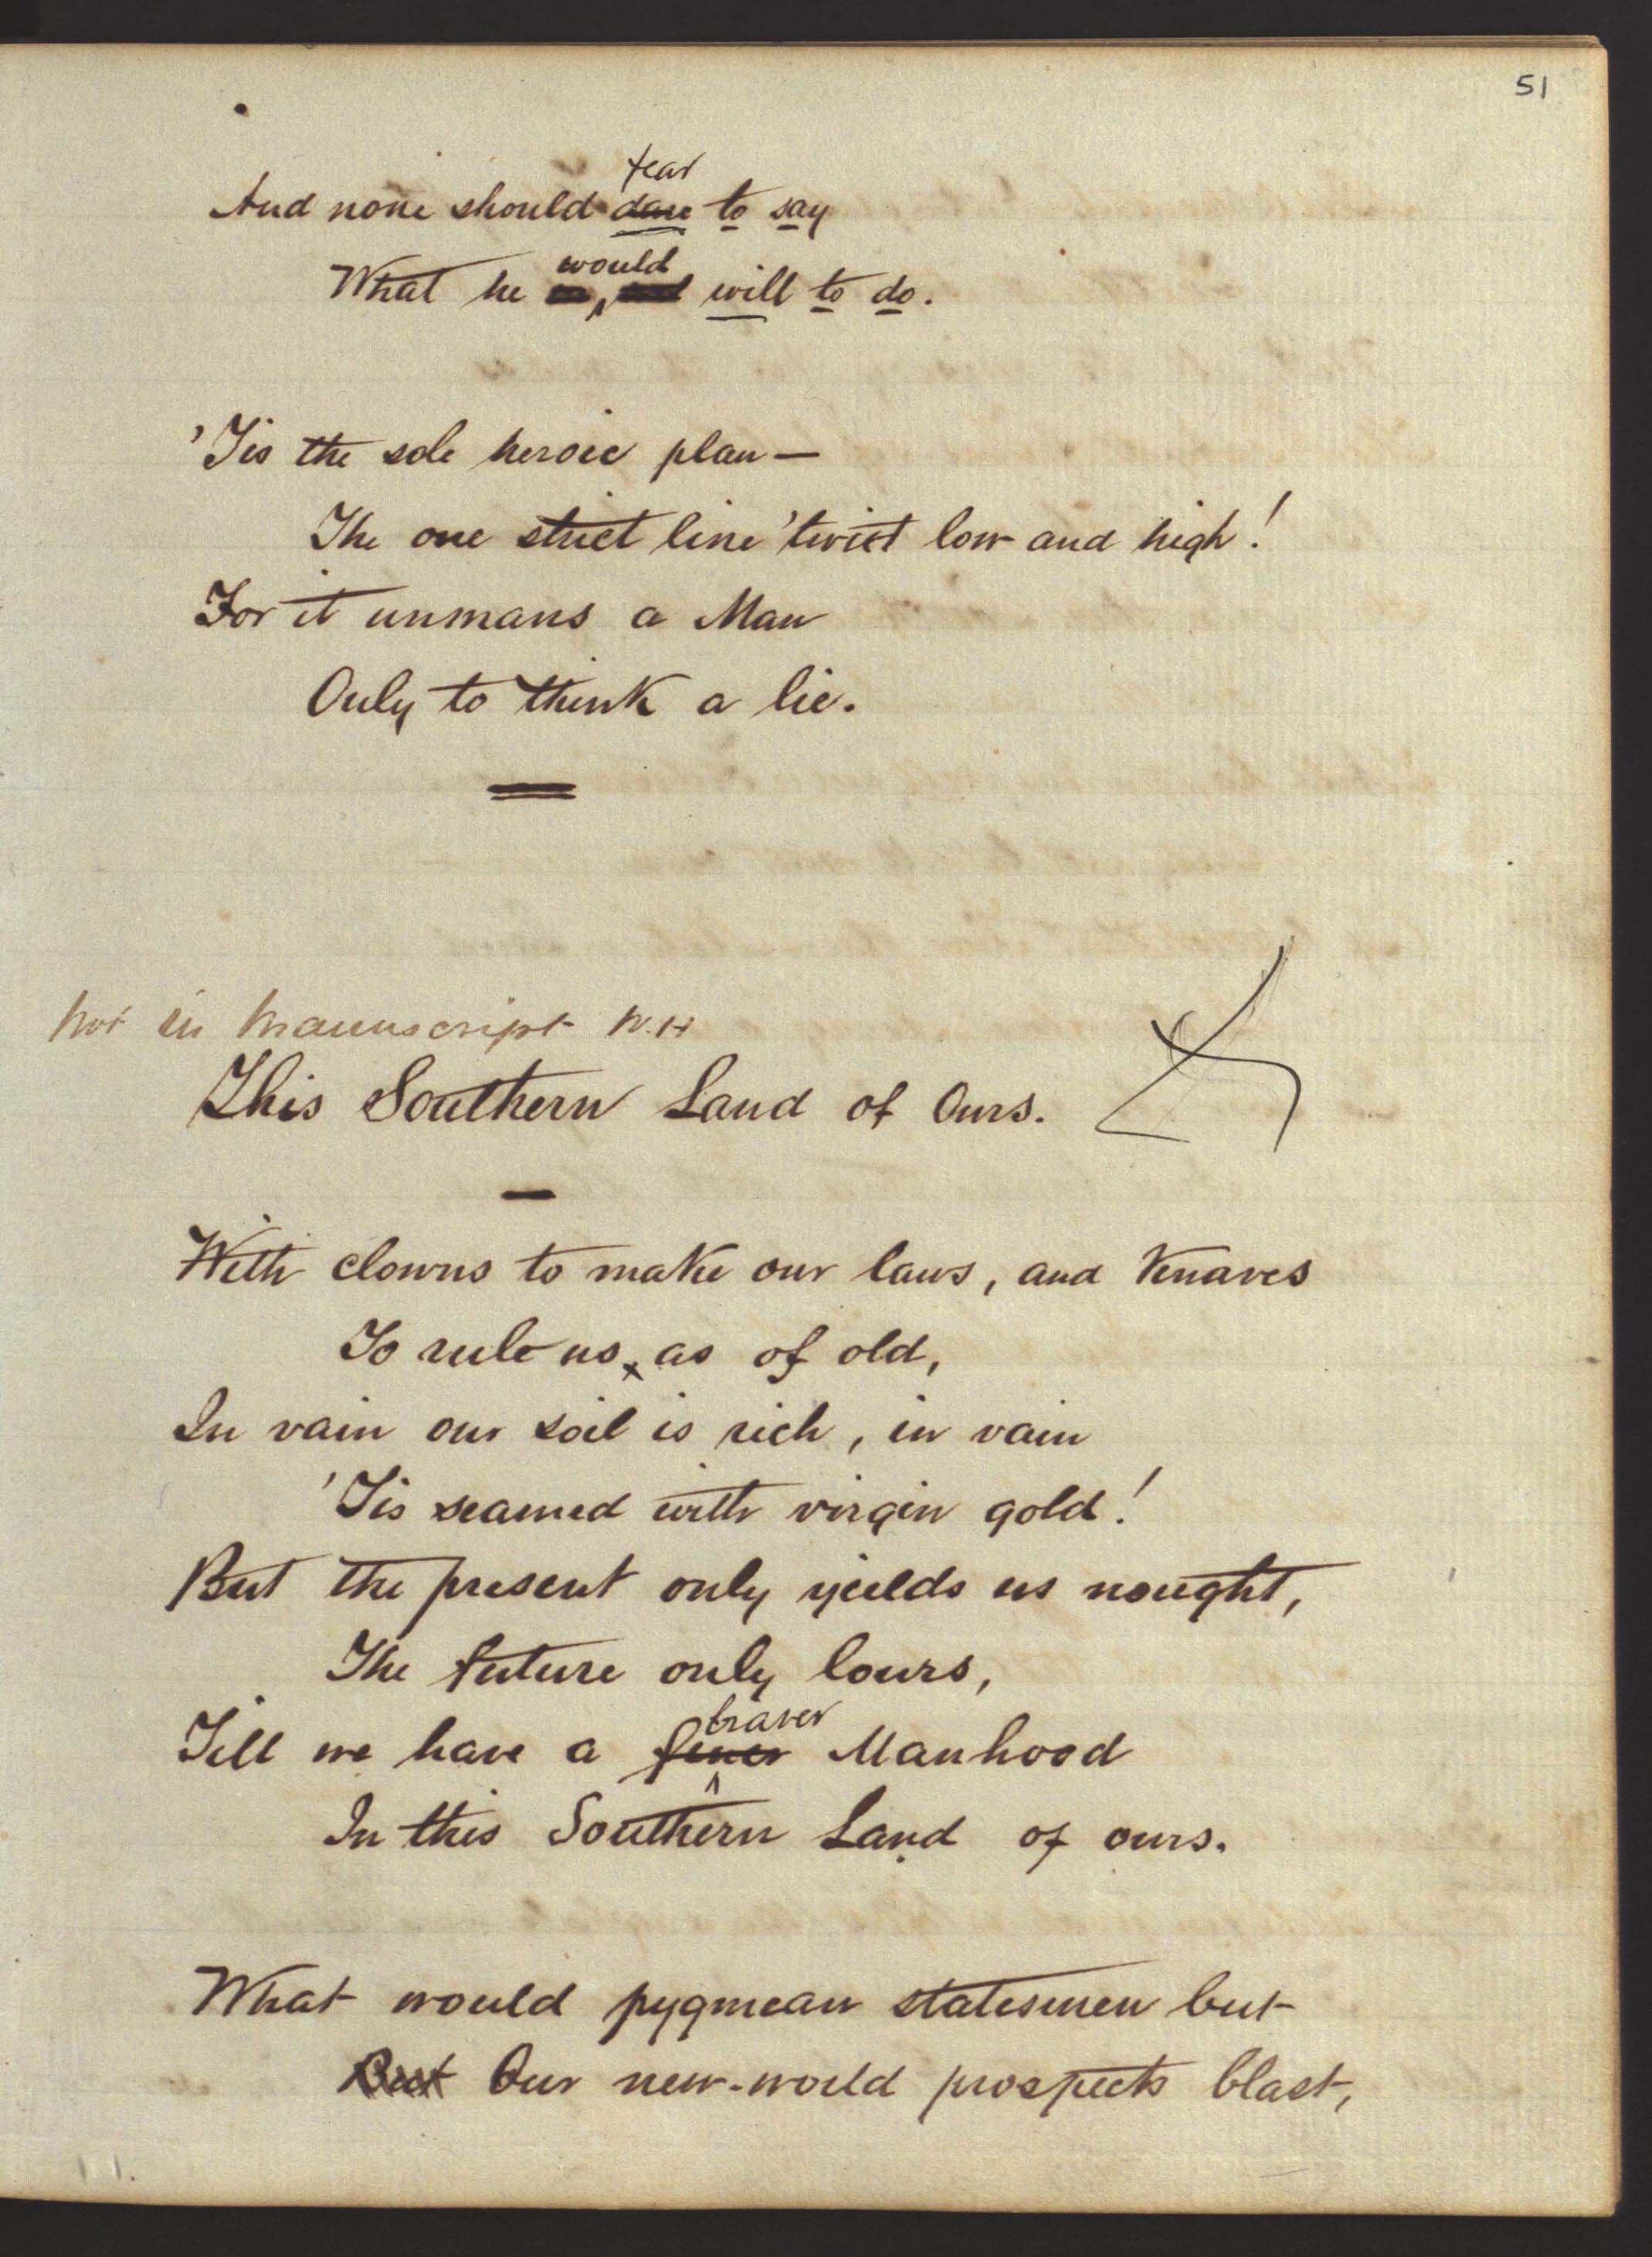 51
And none should dare fear to say
What he would will to do.
'Tis the sole heroic plan—
The one strict line 'twixt low and high!
For it unmans a Man
Only to think a lie.
Not in Manuscript W.H
This Southern Land of Ours.
With clowns to make our laws, and Knaves
To rule us, as of old,
In vain our soil is rich, in vain
'Tis seamed with virgin gold!
But the present only yields us nought,
The future only lours,
Till we have a finer braver Manhood
In this Southern Land of ours.
What would pygmean statesmen but
But Our new-world prospects blast,